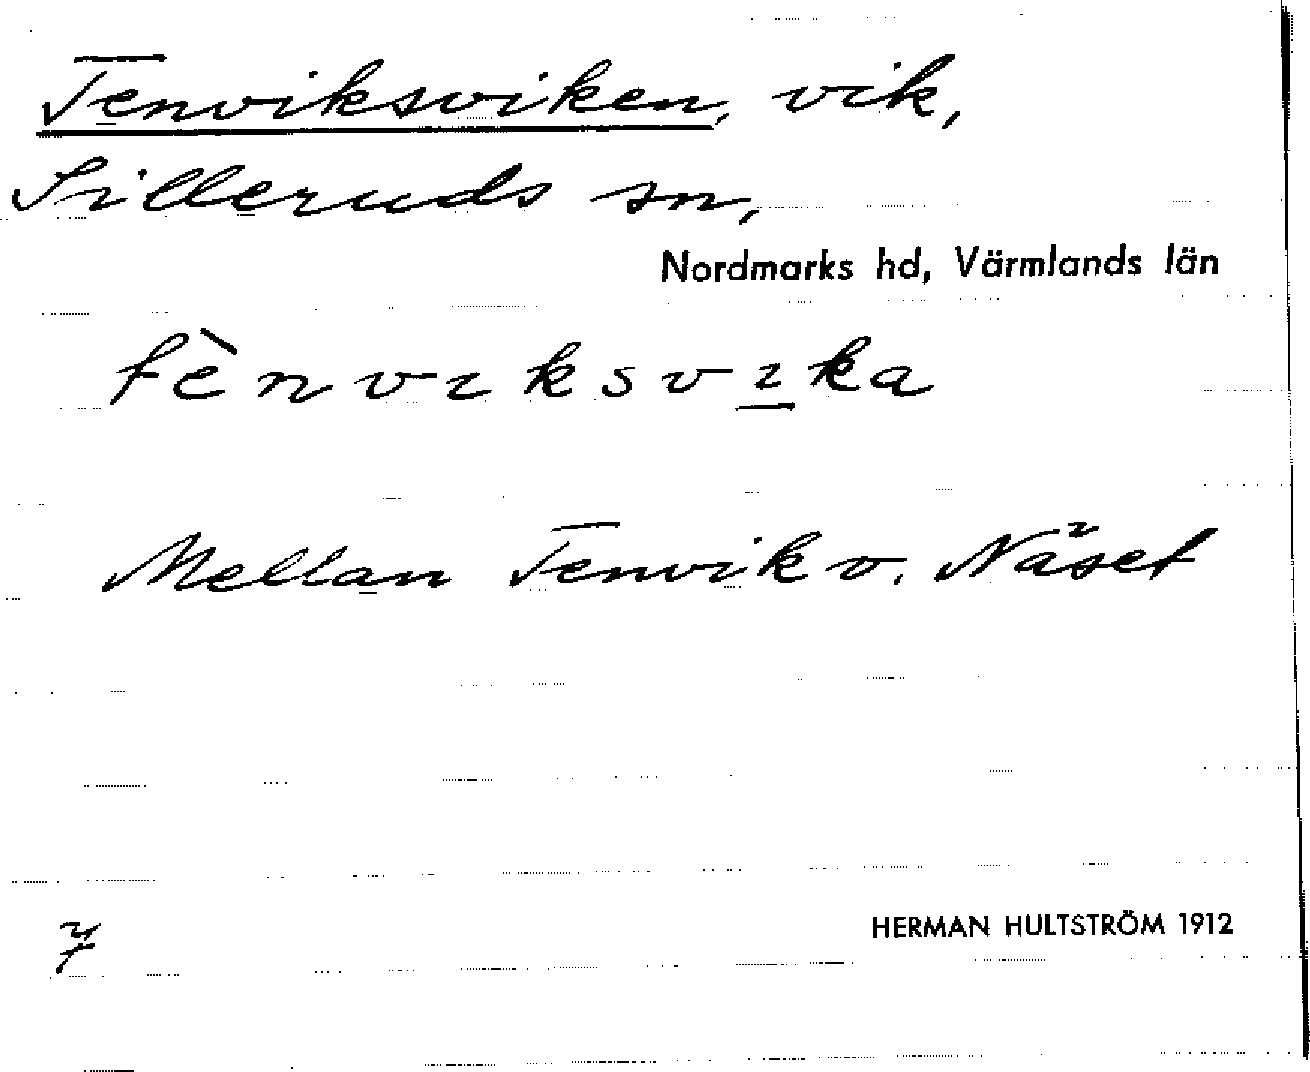 Tenviksviken, vik,
Silleruds sn,
Nordmarks hd, Värmlands län
tènvıksvı̲ka
Mellan Tenvik o. Näset
7
HERMAN HULTSTRÖM 1912